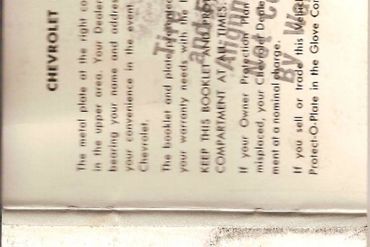 CHEVROLET
The metal plate at the right co
in the upper area. Your Dealer
bearing your name and address
your convenience in the event
Chevrolet.
The booklet and plate
your warranty needs with the
KEEP THIS BOOKLET AND
COMPARTMENT AT ALL TIMES.
If your Owner Protection Plan
misplaced, your Chevrolet Deale
ment at a nominal charge.
If you sell or trade this Vehicle
Protect-O-Plate in the Glove Con
Tire
and
Alignm
Not Co
By Wa